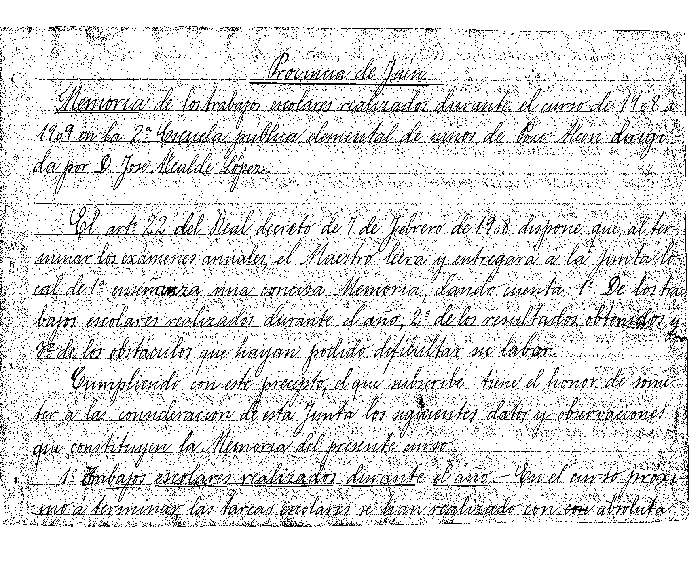 Provincia de Jaén
Memoria de los trabajos escolares realizados durante el curso de 1908 a
1909 en la 2ª Escuela pública elemental de niños de dirigi-
da por D. José Alcalde López.
El artº 22 del Real decreto de 7 de Febrero de 1908 dispone que al ter-
minar los exámenes anuales, el Maestro leerá y entregará a la Junta lo-
cal de 1ª enseñanza una concisa Memoria, dando cuenta 1º De los tra-
bajos escolares realizados durante el año, 2º de los resultados obtenidos y
3º de los obstáculos que hayan podido dificultar su labor.
Cumpliendo con este precepto, el que subscribe tiene el honor de some-
ter a las consideración de esta Junta los siguientes datos y observaciones
que constituyen la Memoria del presente curso.
1º Trabajos escolares realizados durante el año - En el curso próxi-
mo a terminar, las tareas escolares se han realizado con absoluta